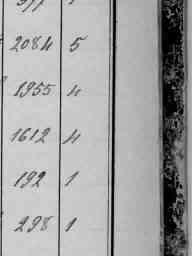 2084 5
1955 4
1612 4
192 1
298 1